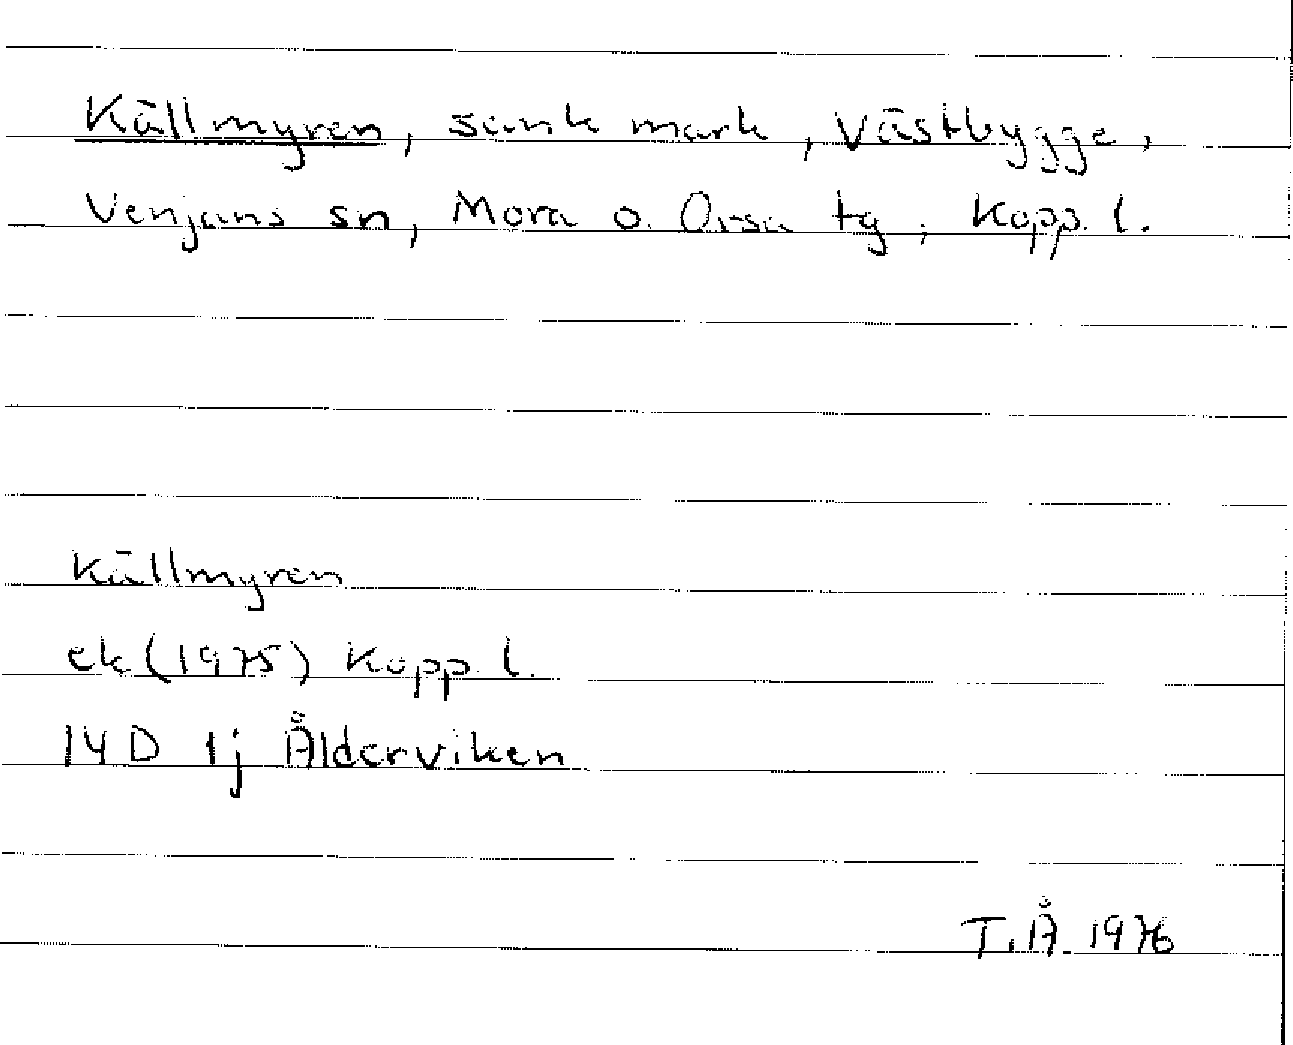 Källmyren, sank mark, Västbygge,
Venjans sn, Mora o. Orsa tg, Kopp. l.
Källmyren
ek (1975) Kopp. l.
14 D 1j Ålderviken
T.Å. 1976